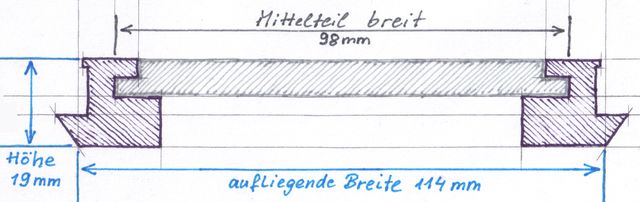 Mittelteil breit
98mm
Höhe
19mm
aufliegende Breite 114mm